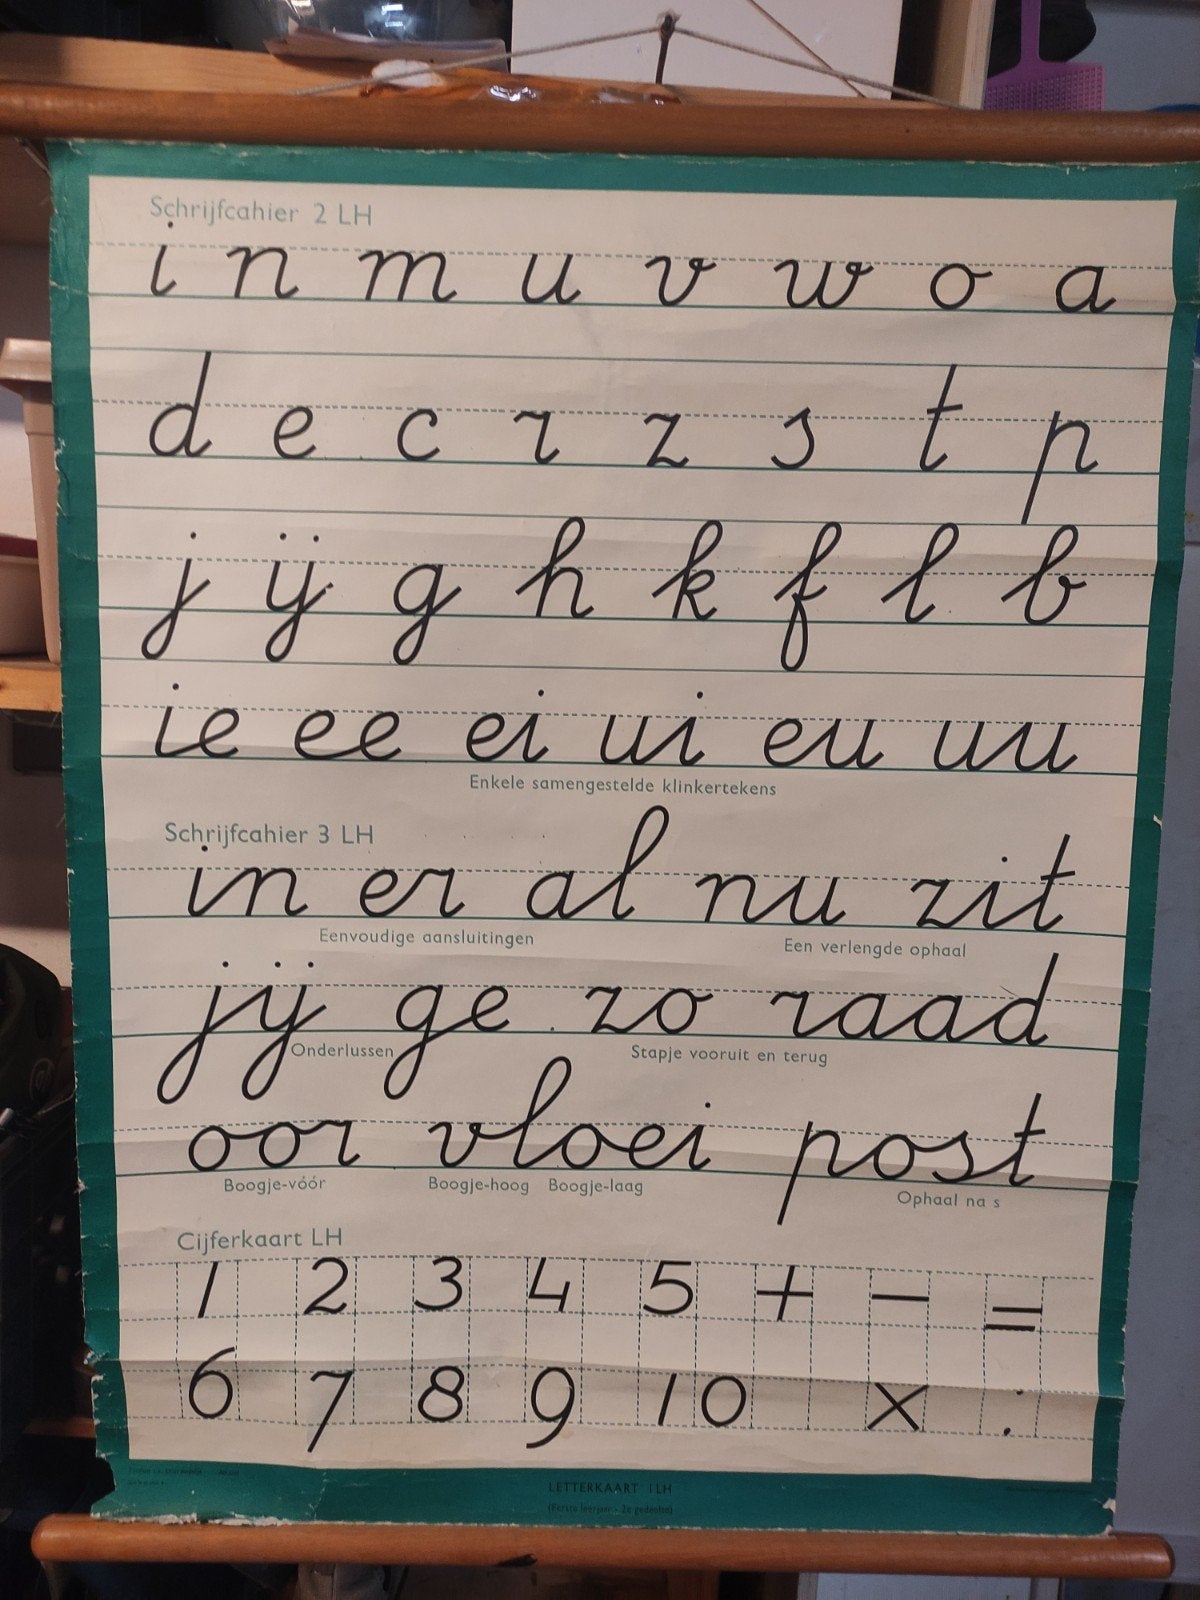 Schrijfcahier 2 LH
i n m u v w o a
d e c r z s t p
j ij g h k f l b
ie ee ei ui eu uu
Enkele samengestelde klinkertekens
Schrijfcahier 3 LH
in er al nu zit
Eenvoudige aansluitingen Een verlengde ophaal
jij ge zo raad
Onderlussen Stapje vooruit en terug
oor vloei post
Boogje-vóór Boogje-hoog Boogje-laag Ophaal na s
Cijferkaart LH
1 2 3 4 5 + − =
6 7 8 9 10 × :
LETTERKAART 1LH
(Eerste leerjaar - 2e gedeelte)